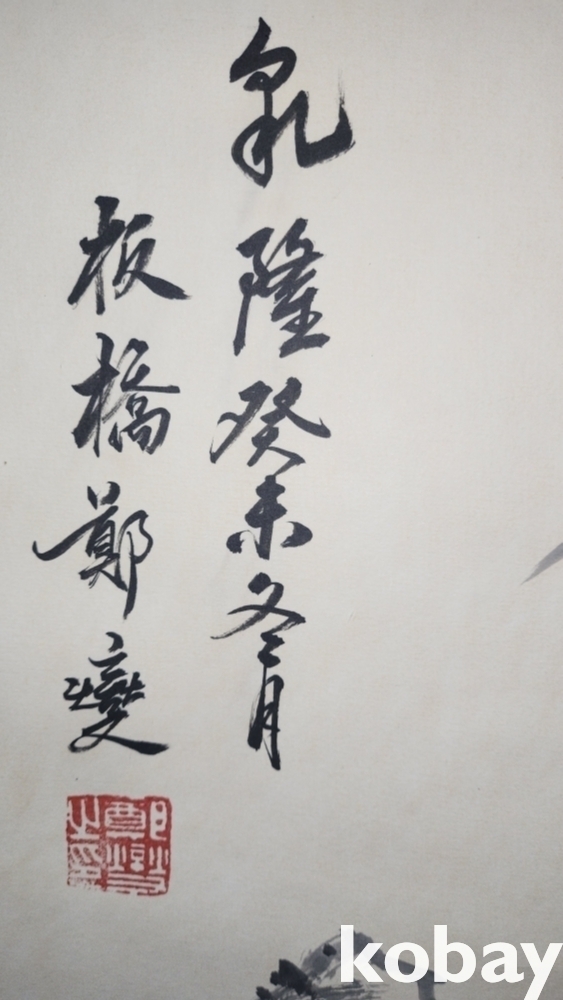 乹隆癸未冬月
板橋鄭燮
鄭燮之印
kobay